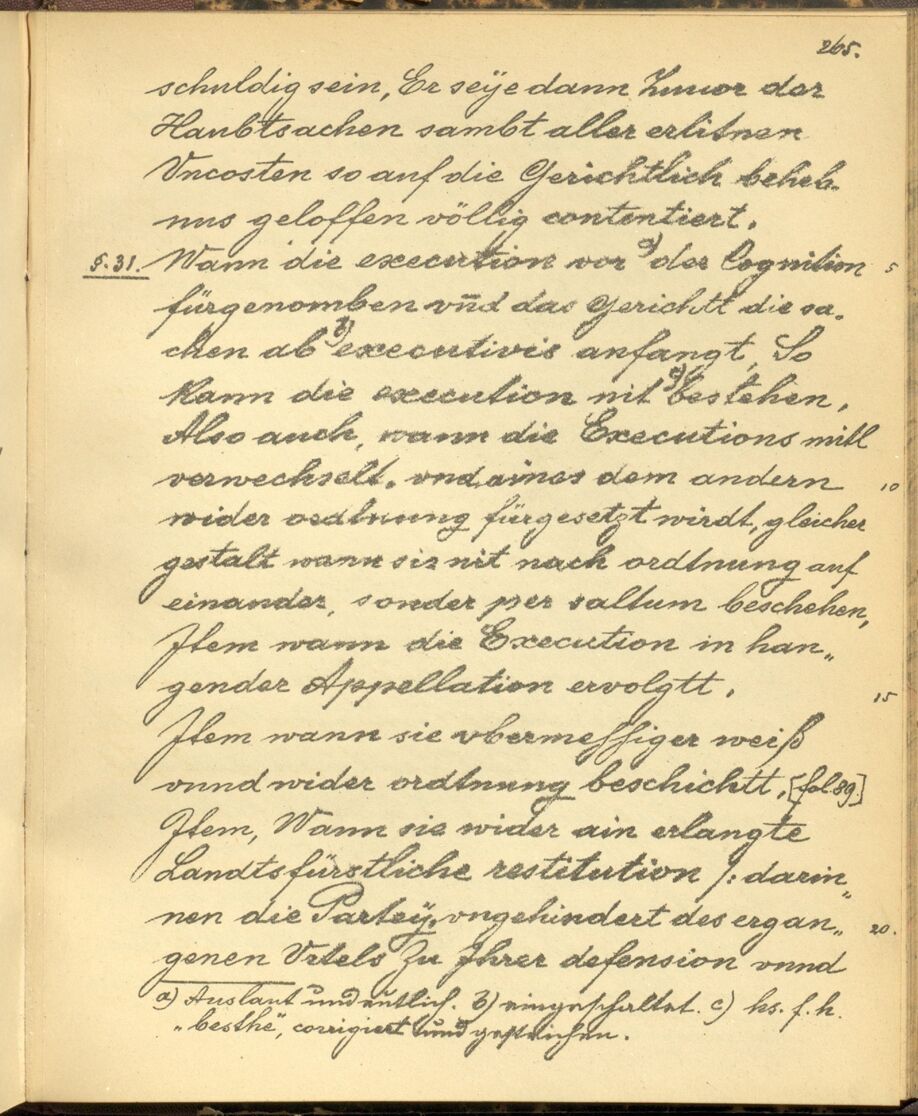 265.
schuldig sein, Er seÿe dann Zuuor der
Haubtsachen sambt aller erlitnen
Vncosten so auf die Gerichtlich beheb-
nus geloffen völlig contentiert.
§. 31. Wann die execution vor a) der Cognition 5
fürgenomben vnd das Gerichtt die sa-
chen ab b) executivis anfangt, So
kann die execution nit c) bestehen,
Also auch, wann die Executions mitl
verwechselt, vnd aines dem andern 10
wider ordtnung fürgesetzt wirdt, gleicher
gestalt wann sie nit nach ordtnung auf
einander, sonder per saltum beschehen,
Item wann die Execution in han„
gender Appellation ervolgtt. 15
Item wann sie vbermessiger weiß
vnnd wider ordtnung beschichtt, [fol. 89.]
Item, Wann sie wider ain erlangte
Landtsfürstliche restitution /: darin„
nen die Parteÿ, vngehindert des ergan„ 20.
genen Vrtels Zu Ihrer defension vnnd
a) Auslaut undeutlich. b) eingeschaltet. c) hs. f. h.
„besthe", corrigiert und gestrichen.